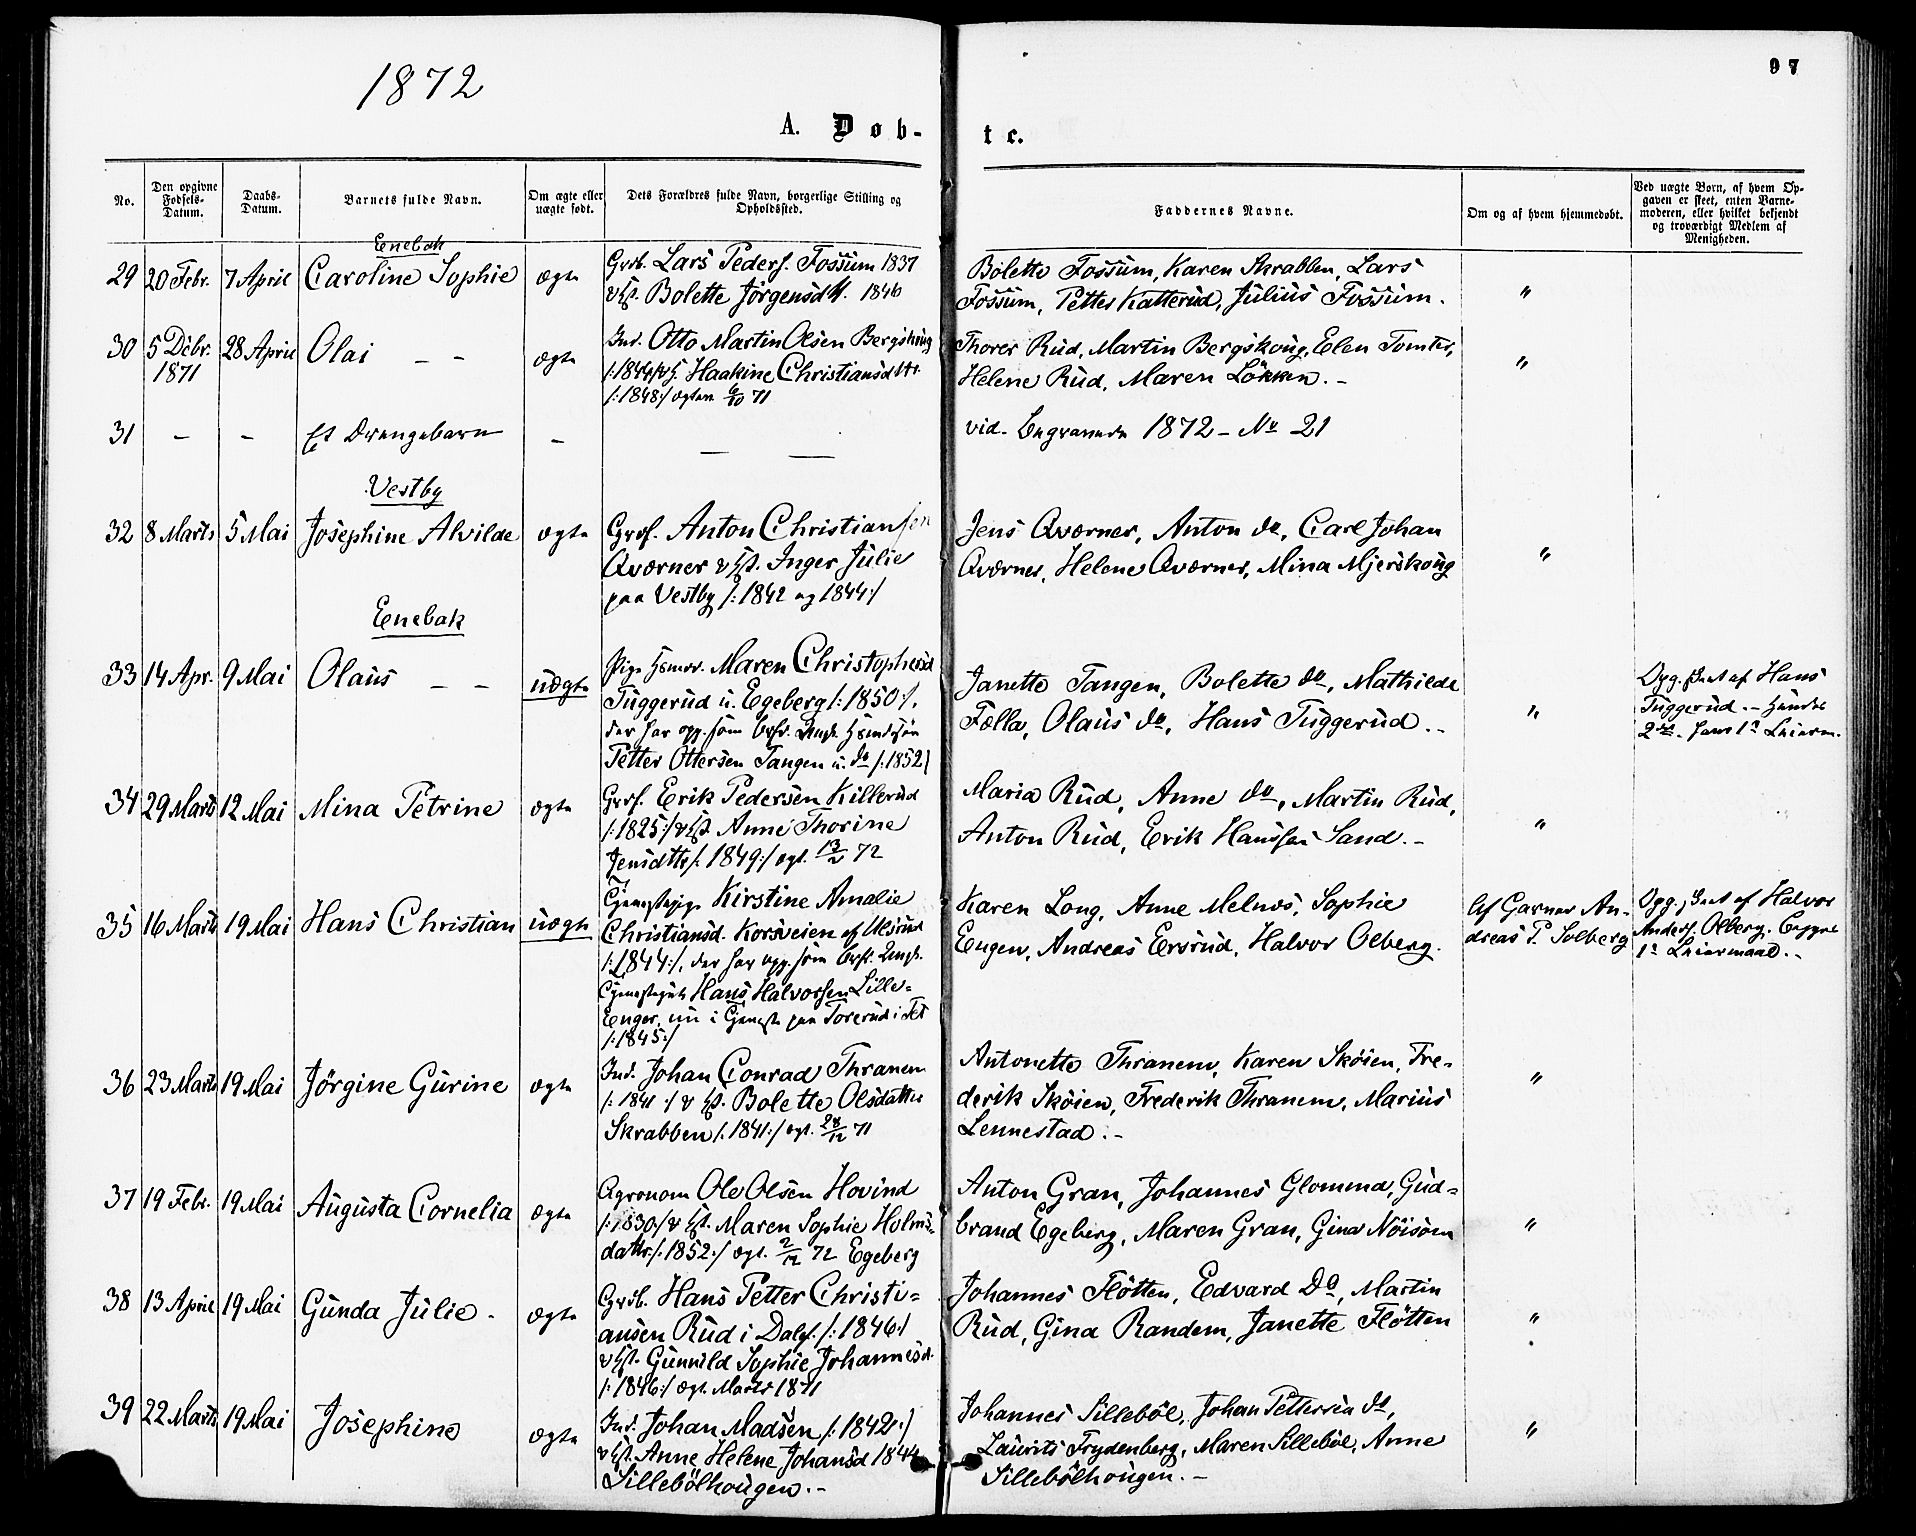 1872
97
A. Døb-
te.
No.
Den opgivne Fødsels-Datum.
Daabs-Datum.
Barnets fulde Navn.
Om ægte eller uægte født.
Dets Forældres fulde Navn, borgerlige Stilling og Opholdssted.
Faddernes Navne.
Om og af hvem hjemmedøbt.
Ved uægte Børn, af hvem Opgaven er skeet, enten Barnemoderen, eller hvilket bekjendt og troværdigt Medlem af Menigheden.
Enebak
29 20 Febr. 7 April Caroline Sophie ægte
Grb. Lars Peders. Fossum 1837
Bolette Jörgensdtt. 1846
Bolette Fossum, Karen Skrabben, Lars
Fossum, Petter Katterud, Julius Fossum.
"
30 5 Dcbr. 1871 28 April Olai – – ægte
Ind. Otto Martin Olsen Bergskoug
/:1844/ Haakine Christiansdttr.
/:1848:/ ægtev. 6/10 71
Thorer Rud, Martin Bergskoug, Elen Tomter,
Helene Rud, Maren Lökken. –
"
31 – – Et Drengebarn – – –
vid. Begravede 1872 – No 21
Vestby
32 8 Marts 5 Mai Josephine Alvilde ægte
Grdf. Anton Christiansen
Qværner & Hst. Inger Julie
paa Vestby /:1842 og 1844:/
Jens Qværner, Anton do, Carl Johan
Qværner, Helene Qværner, Mina Mjerskoug
"
Enebak
33 14 Apr. 9 Mai Olaus – – uægte
Pige Maren Christophersd
Tuggerud u. Egeberg /:1850:/,
der har opg. som Brfd. Ungk.
Petter Ottersen Tangen u. do /:1852/
Janette Tangen, Bolette do, Mathilde
Fælla, Olaus do, Hans Tuggerud. –
"
Opg. skeet af Hans
Tuggerud. –
34 29 Marts 12 Mai Mina Petrine ægte
Grf. Erik Pedersen Killerud
/:1825:/ & Hst. Anne Thorine
Jensdttr /:1849:/ ægt. 13/2 72
Maria Rud, Anne do, Martin Rud,
Anton Rud, Erik Hanssen Sand. –
"
35 16 Marts 19 Mai Hans Christian uægte
Tjenestepige Kirstine Amalie
Christiansd. Korsveien af
/:1844:/, der har opg. som Brf. Ungk.
Tjenestegut Hans Halvorssen Lille-
Enger, nu i Tjeneste paa Torerud i Fet
/:1845:/
Karen Long, Anne Melnæs, Sophie
Engen, Andreas Ersrud, Halvor Olberg.
Af Garver An-
dreas P. Solberg
Opg. skeet af Halvor
Anders. Olberg. Begges
1ste Leiermaal. –
36 23 Marts 19 Mai Jörgine Gurine ægte
Ind. Johan Conrad Thranem
/:1841:/ & Hst. Bolette Olsdatter
Skrabben /:1841:/ ægt. 28/12 71
Antonette Thranem, Karen Sköien, Fre-
derik Sköien, Frederik Thranem, Marius
Lennestad. –
"
37 19 Febr. 19 Mai Augusta Cornelia ægte
Agronom Ole Olsen Hovind
/:1830/ & Hst. Maren Sophie Holms-
dattr. /:1852:/ ægt. 72 Egeberg
Anton Gran, Johannes Glomma, Gud-
brand Egeberg, Maren Gran, Gina Nöisom
"
38 13 April 19 Mai Gunda Julie. ægte
Grdb. Hans Petter Christi-
ansen Rud i Dalef. /:1846:/
& Hst. Gunnild Sophie Johannesd.
/:1846:/ ægt. Marts 1871
Johannes Flötten, Edvard Do, Martin
Rud, Gina Randem, Janette Flötten
"
39 22 Marts 19 Mai Josephine ægte
Ind. Johan Madsen /:1842:/
& Hst. Anne Helene Johansd 1844
Sillebölhougen. –
Johannes Silleböl, Johan Pettersen do,
Laurits Frydenberg, Maren Silleböl, Anne
Sillebölhougen. –
"